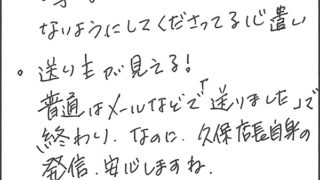 ないようにしてくださってる心遣い
・送り主が見える!
普通はメールなどで「送りました」で
終わり.なのに.久保店長自身の
発信.安心しますね.